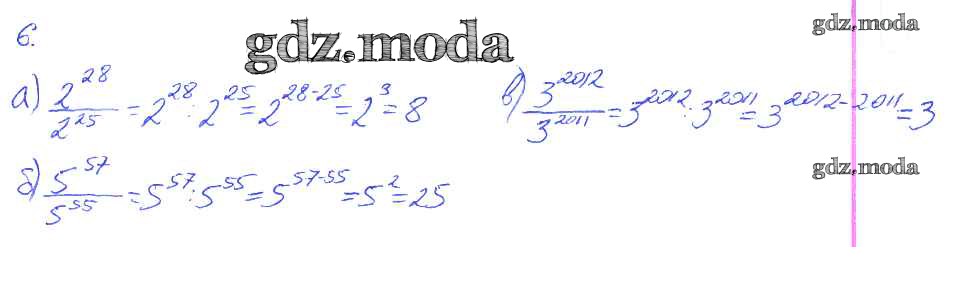 6.
gdz.moda
gdz.moda
а) 2^28/2^25 = 2^28 : 2^25 = 2^28-25 = 2^3 = 8
в) 3^2012/3^2011 = 3^2012 : 3^2011 = 3^2012-2011 = 3
б) 5^57/5^55 = 5^57 : 5^55 = 5^57-55 = 5^2 = 25
gdz.moda